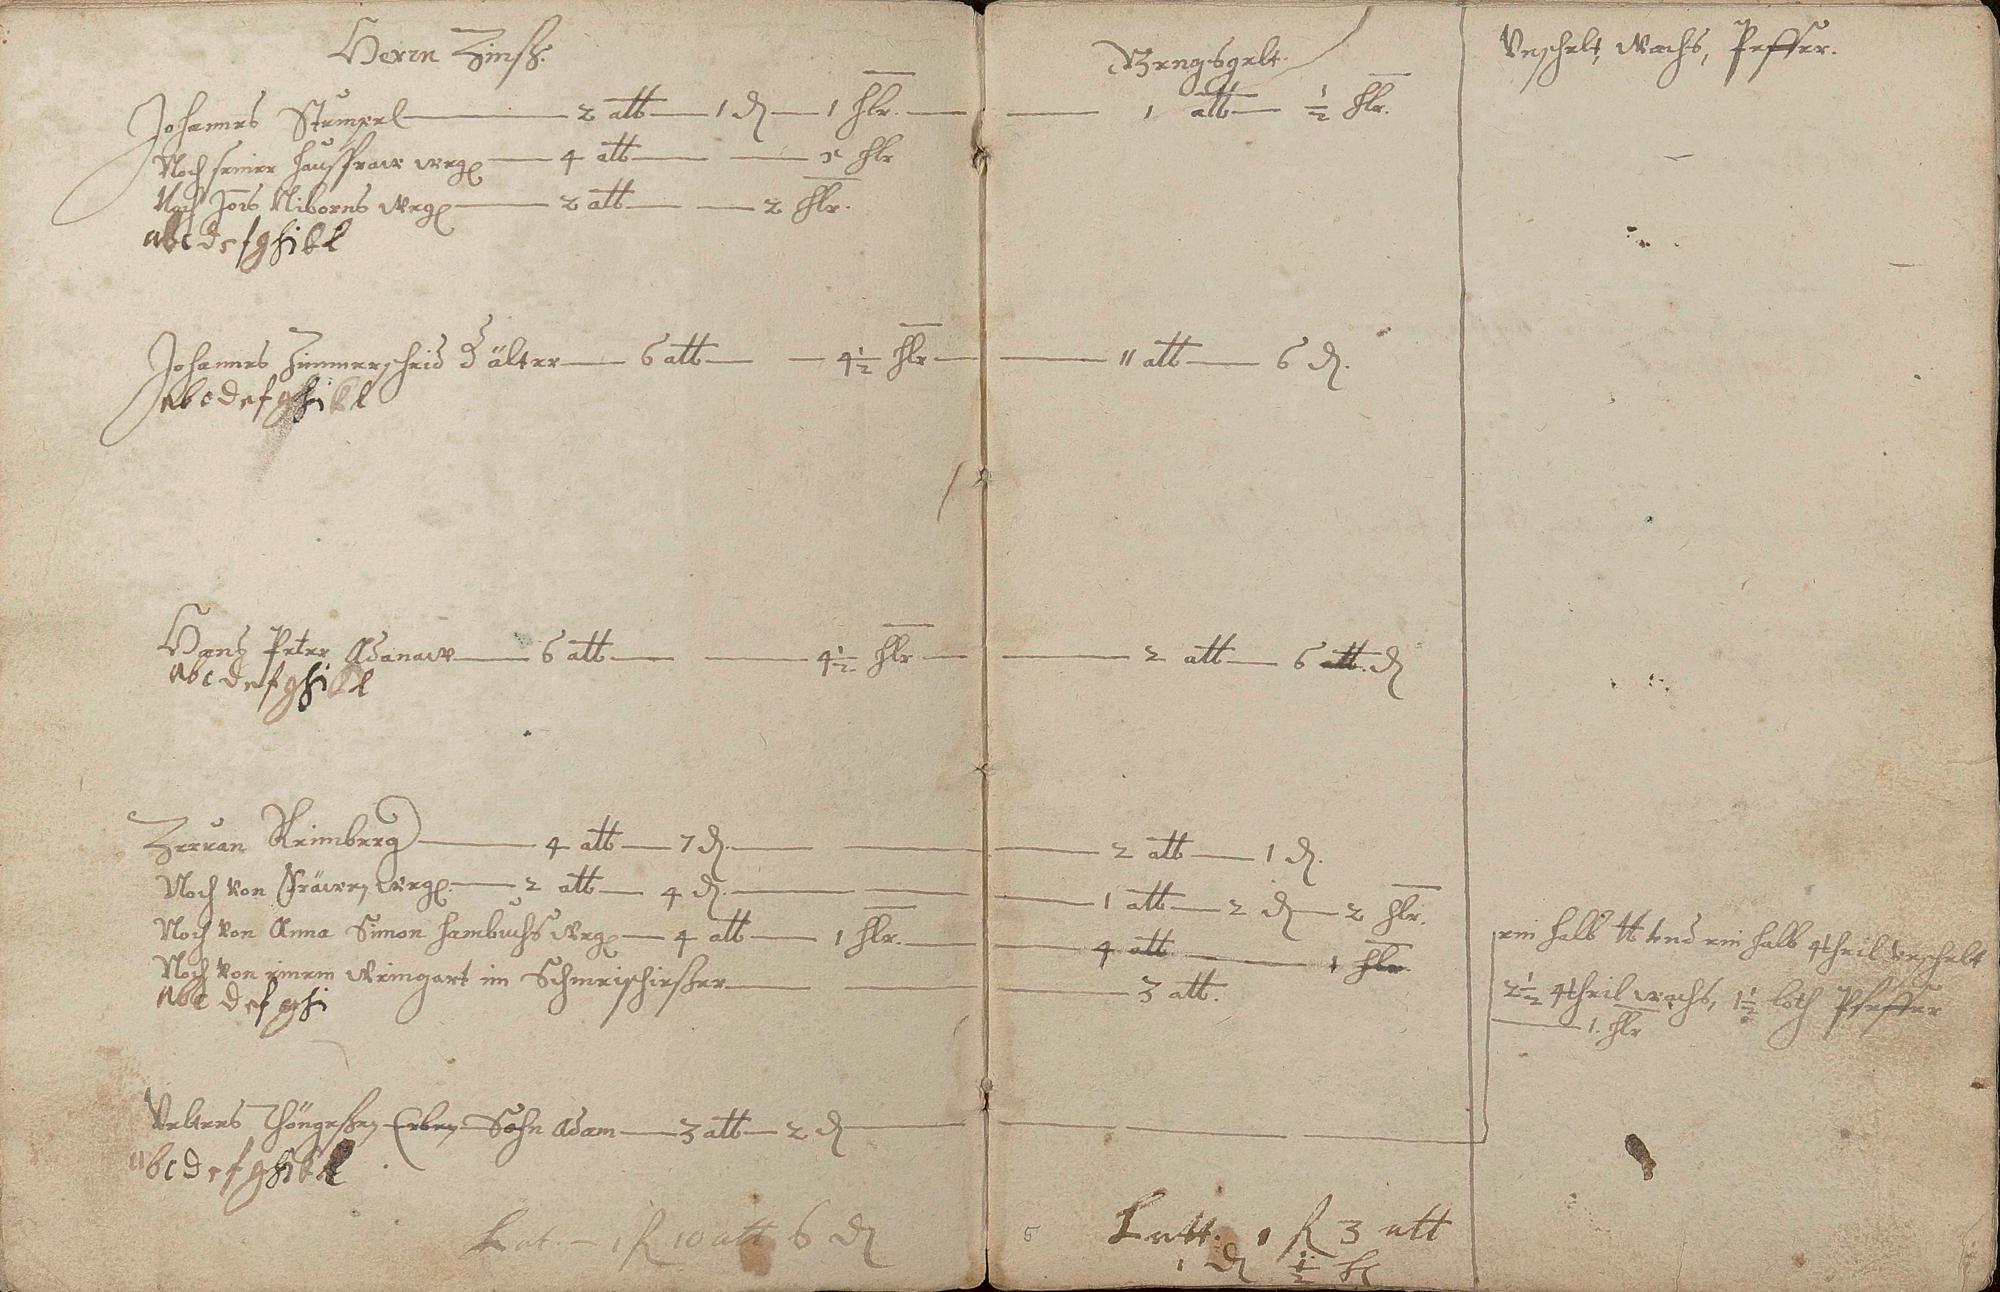 Herrn Zinß.
Johannes Stümpel — 2 alb — 1 d — 1 hlr. —
Noch seiner haußfraw wegen — 4 alb — — 1 hlr
Noch Jois Niborns wegen — 2 alb — — 2 hlr.
abcdefghikl
Johannes Zimmerscheid d älter — 6 alb — — 4½ hlr —
abcdefghikl
Hans Peter Adanaw — 6 alb — — 4½ hlr —
abcdefghikl
Zervan Reimberg — 4 alb — 7 d. —
Noch von wegen — 2 alb — 4 d. —
Noch von Anna Simon hambuchs wegen — 4 alb — 1 hlr. —
Noch von einem weingart im Schmeischießer —
abcdefghi
Veltens Thöngeßen Erben Sohn Adam — 3 alb — 2 d —
abcdefghikl
Lat. — 1 fl 10 alb 6 d
gelt.
— 1 alb — ½ hlr.
— 11 alb — 6 d.
— 2 alb — 6 alb. d
— 2 alb — 1 d.
— 1 alb — 2 d — 2 hlr.
— 4 alb — 1 hlr
— 3 alb.
6
Latt. 1 fl 3 alb
1 d ½ hl
Veschelt, Wachs, Peffer.
ein halb lb vnd ein halb 4theil veschelt
2½ 4theil wachs, 1½ loth Pfeffer
— 1. hlr